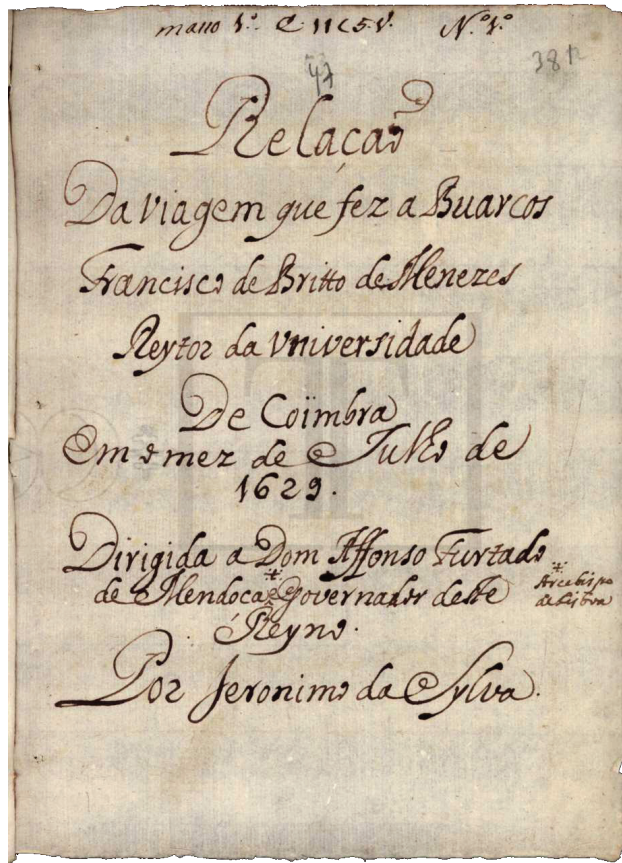 N.º 1.º
47
381
Relação
Da Viagem que fez a Buarcos
Francisco de Britto de Menezes
Reytor da Vniversidade
De Coimbra
Em o mez de Julho de
1629.
Dirigida a Dom Affonso Furtado
de Mendoca * e Governador deste
* Arcebispo
de Lisboa
Reyno.
Por Jeronimo da Sylva.